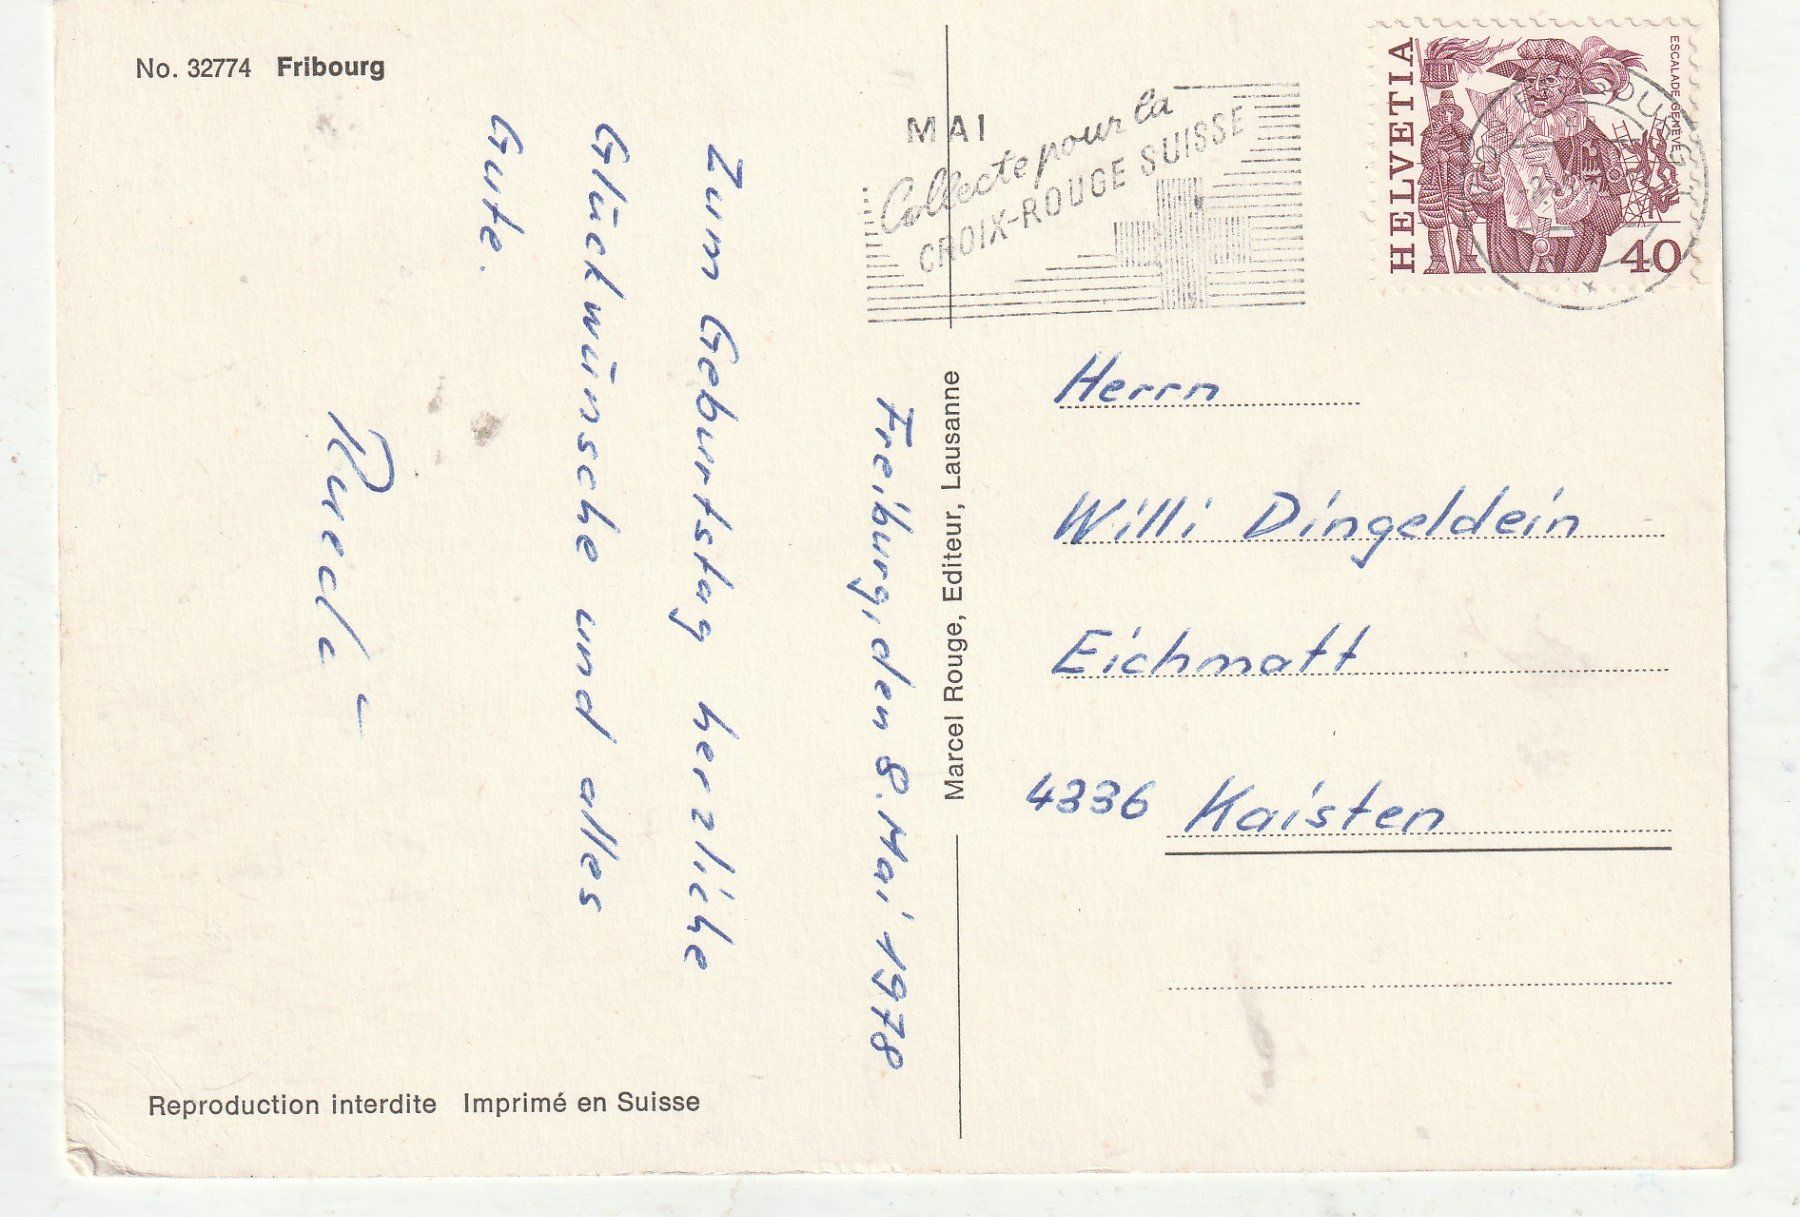 No. 32774 Fribourg
Freiburg, den 8. Mai 1978
Zum Geburtstag herzliche
Glückwünsche und alles
Gute.
Ruedi
Reproduction interdite Imprimé en Suisse
Marcel Rouge, Editeur, Lausanne
MAI
Collecte pour la
CROIX-ROUGE SUISSE
HELVETIA
ESCALADE GENÈVE
40
Herrn
Willi Dingeldein
Eichmatt
4336 Kaisten